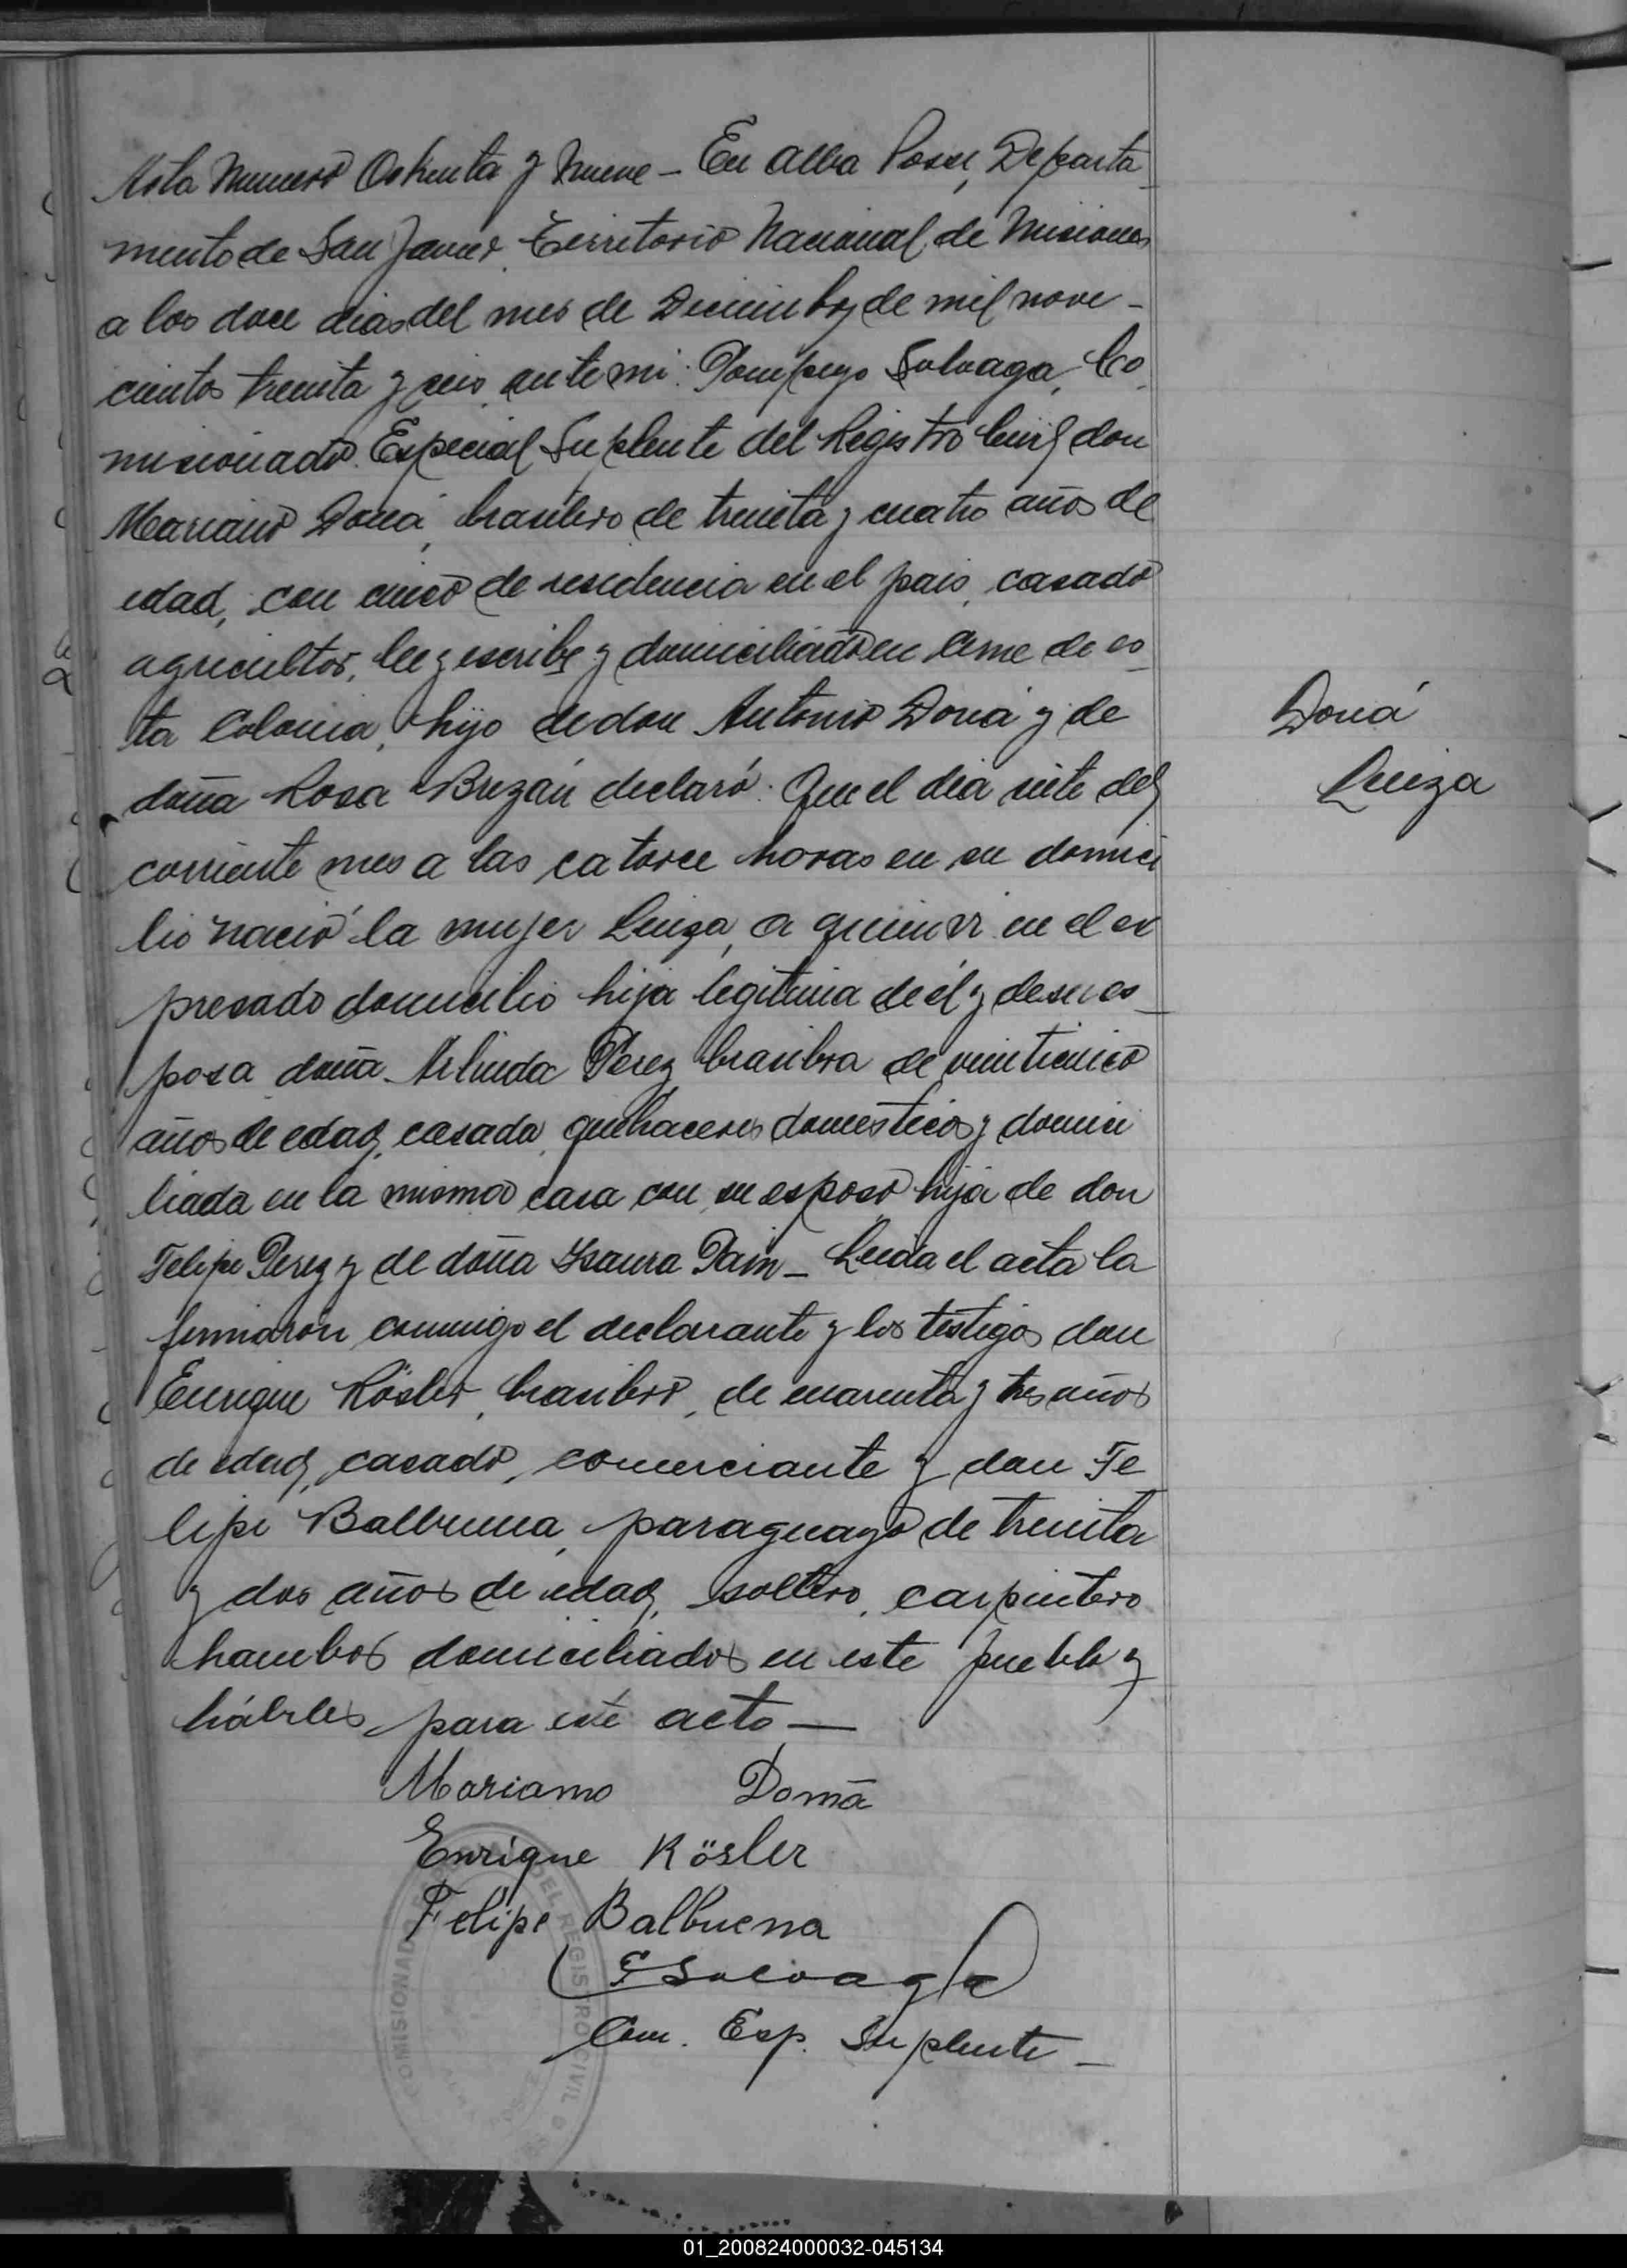 Acta Numero Ochenta y Nueve – En Alba Posse, Departa
mento de San Javier, Territorio Nacional de Misiones
a los doce dias del mes de Diciembre de mil nove –
cientos treinta y seis, ante mi: Pompeyo Salvaga, Co
misionado Especial Suplente del Registro Civil don
Mariano Doná, brasilero de treinta y cuatro años de
edad, con cinco de residencia en el pais, casado
agricultor, lee y escribe y domiciliado en Acme de es
ta Colonia, hijo de don Antonio Doná y de
doña Rosa Buzán declaró: Que el dia siete del
corriente mes a las catorce horas en su domici
lio nació la mujer Luiza, a quien vi en el ex
presado domicilio hija legitima de él y de su es –
posa doña Arlinda Perez brasilera de veinticinco
años de edad, casada, quehaceres domesticos y domici
liada en la misma casa con su esposo hija de don
Felipe Perez y de doña Isaura Pain – Leida el acta la
firmaron conmigo el declarante y los testigos don
Enrique Kösler, brasilero, de cuarenta y tres años
de edad, casado, comerciante y don Fe
lipe Balbuena, paraguayo de treinta
y dos años de edad, soltero, carpintero
hambos domiciliados en este pueblo y
hábiles para este acto —
Doná
Luiza
Mariano Doná
Enrique Kösler
Felipe Balbuena
P Salvaga
Com. Esp. Suplente –
COMISIONADO DEL REGISTRO CIVIL
01_200824000032-045134